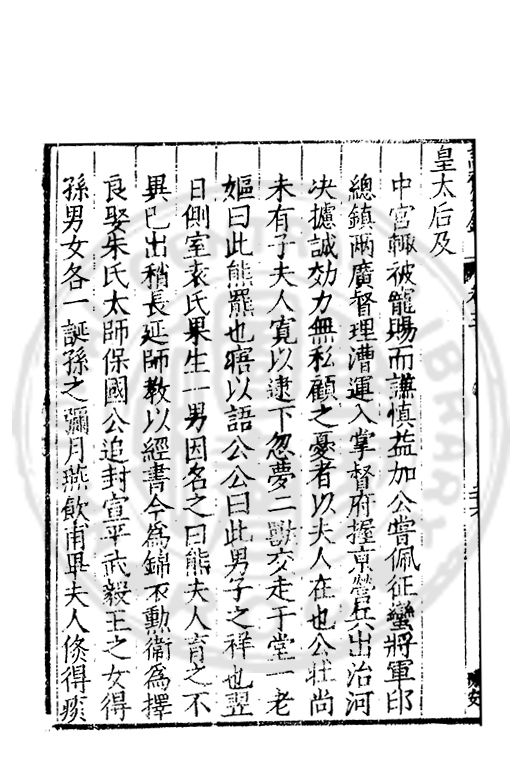 皇太后及
中宮輒被寵賜而謙慎益加公嘗佩征蠻將軍印
總鎮兩廣督理漕運入掌督府握京營兵出治河
决攄誠効力無私顧之憂者以夫人在也公壯尚
未有子夫人寛以逮下忽夢二獸交走于堂一老
嫗曰此熊羆也寤以語公公曰此男子之祥也翌
日側室袁氏果生一男因名之曰熊夫人育之不
異已出稍長延師教以經書今為錦衣勲衛為擇
良娶朱氏太師保國公追封宣平武毅王之女得
孫男女各一誕孫之彌月燕飲甫畢夫人倐得痰